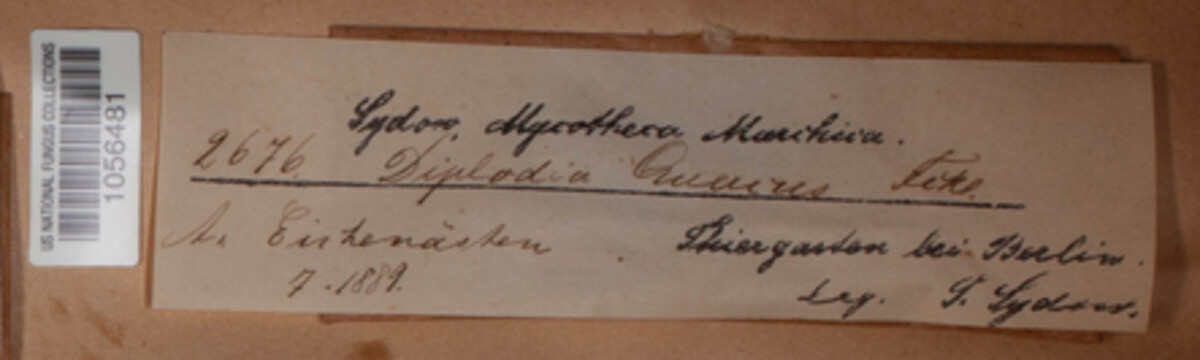 US NATIONAL FUNGUS COLLECTIONS
1056481
Sydow, Mycotheca Marchica.
2676. Diplodia Quercus Fckl.
An Eichenästen
7.1889.
Thiergarten bei Berlin.
Leg. P. Sydow.